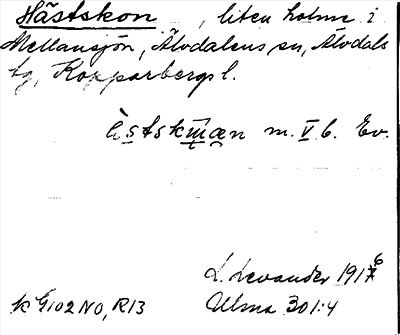 Hästskon, liten holme i
Mellansjön, Älvdalens sn, Älvdals
tg, Kopparbergs l.
m. V b. Ev.
L. Levander 1916
k G102 NO, R13 Ulma 301:4